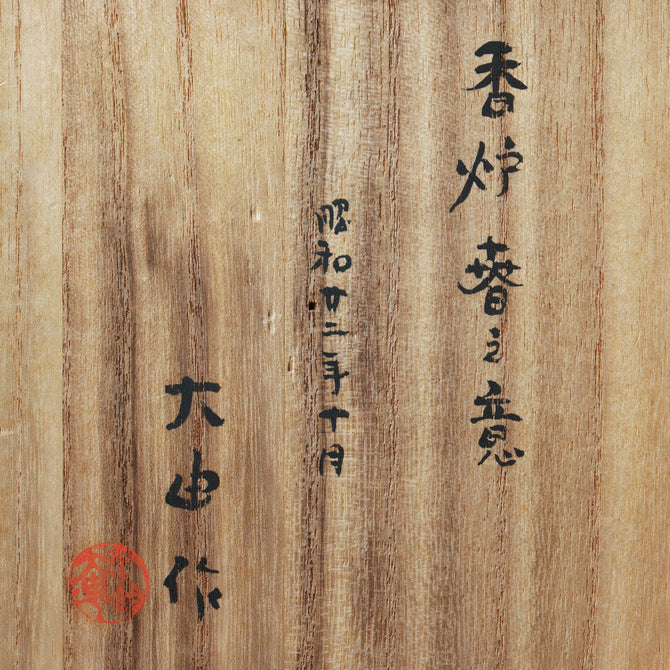 香炉 春之意
昭和廿二年十月
大由作